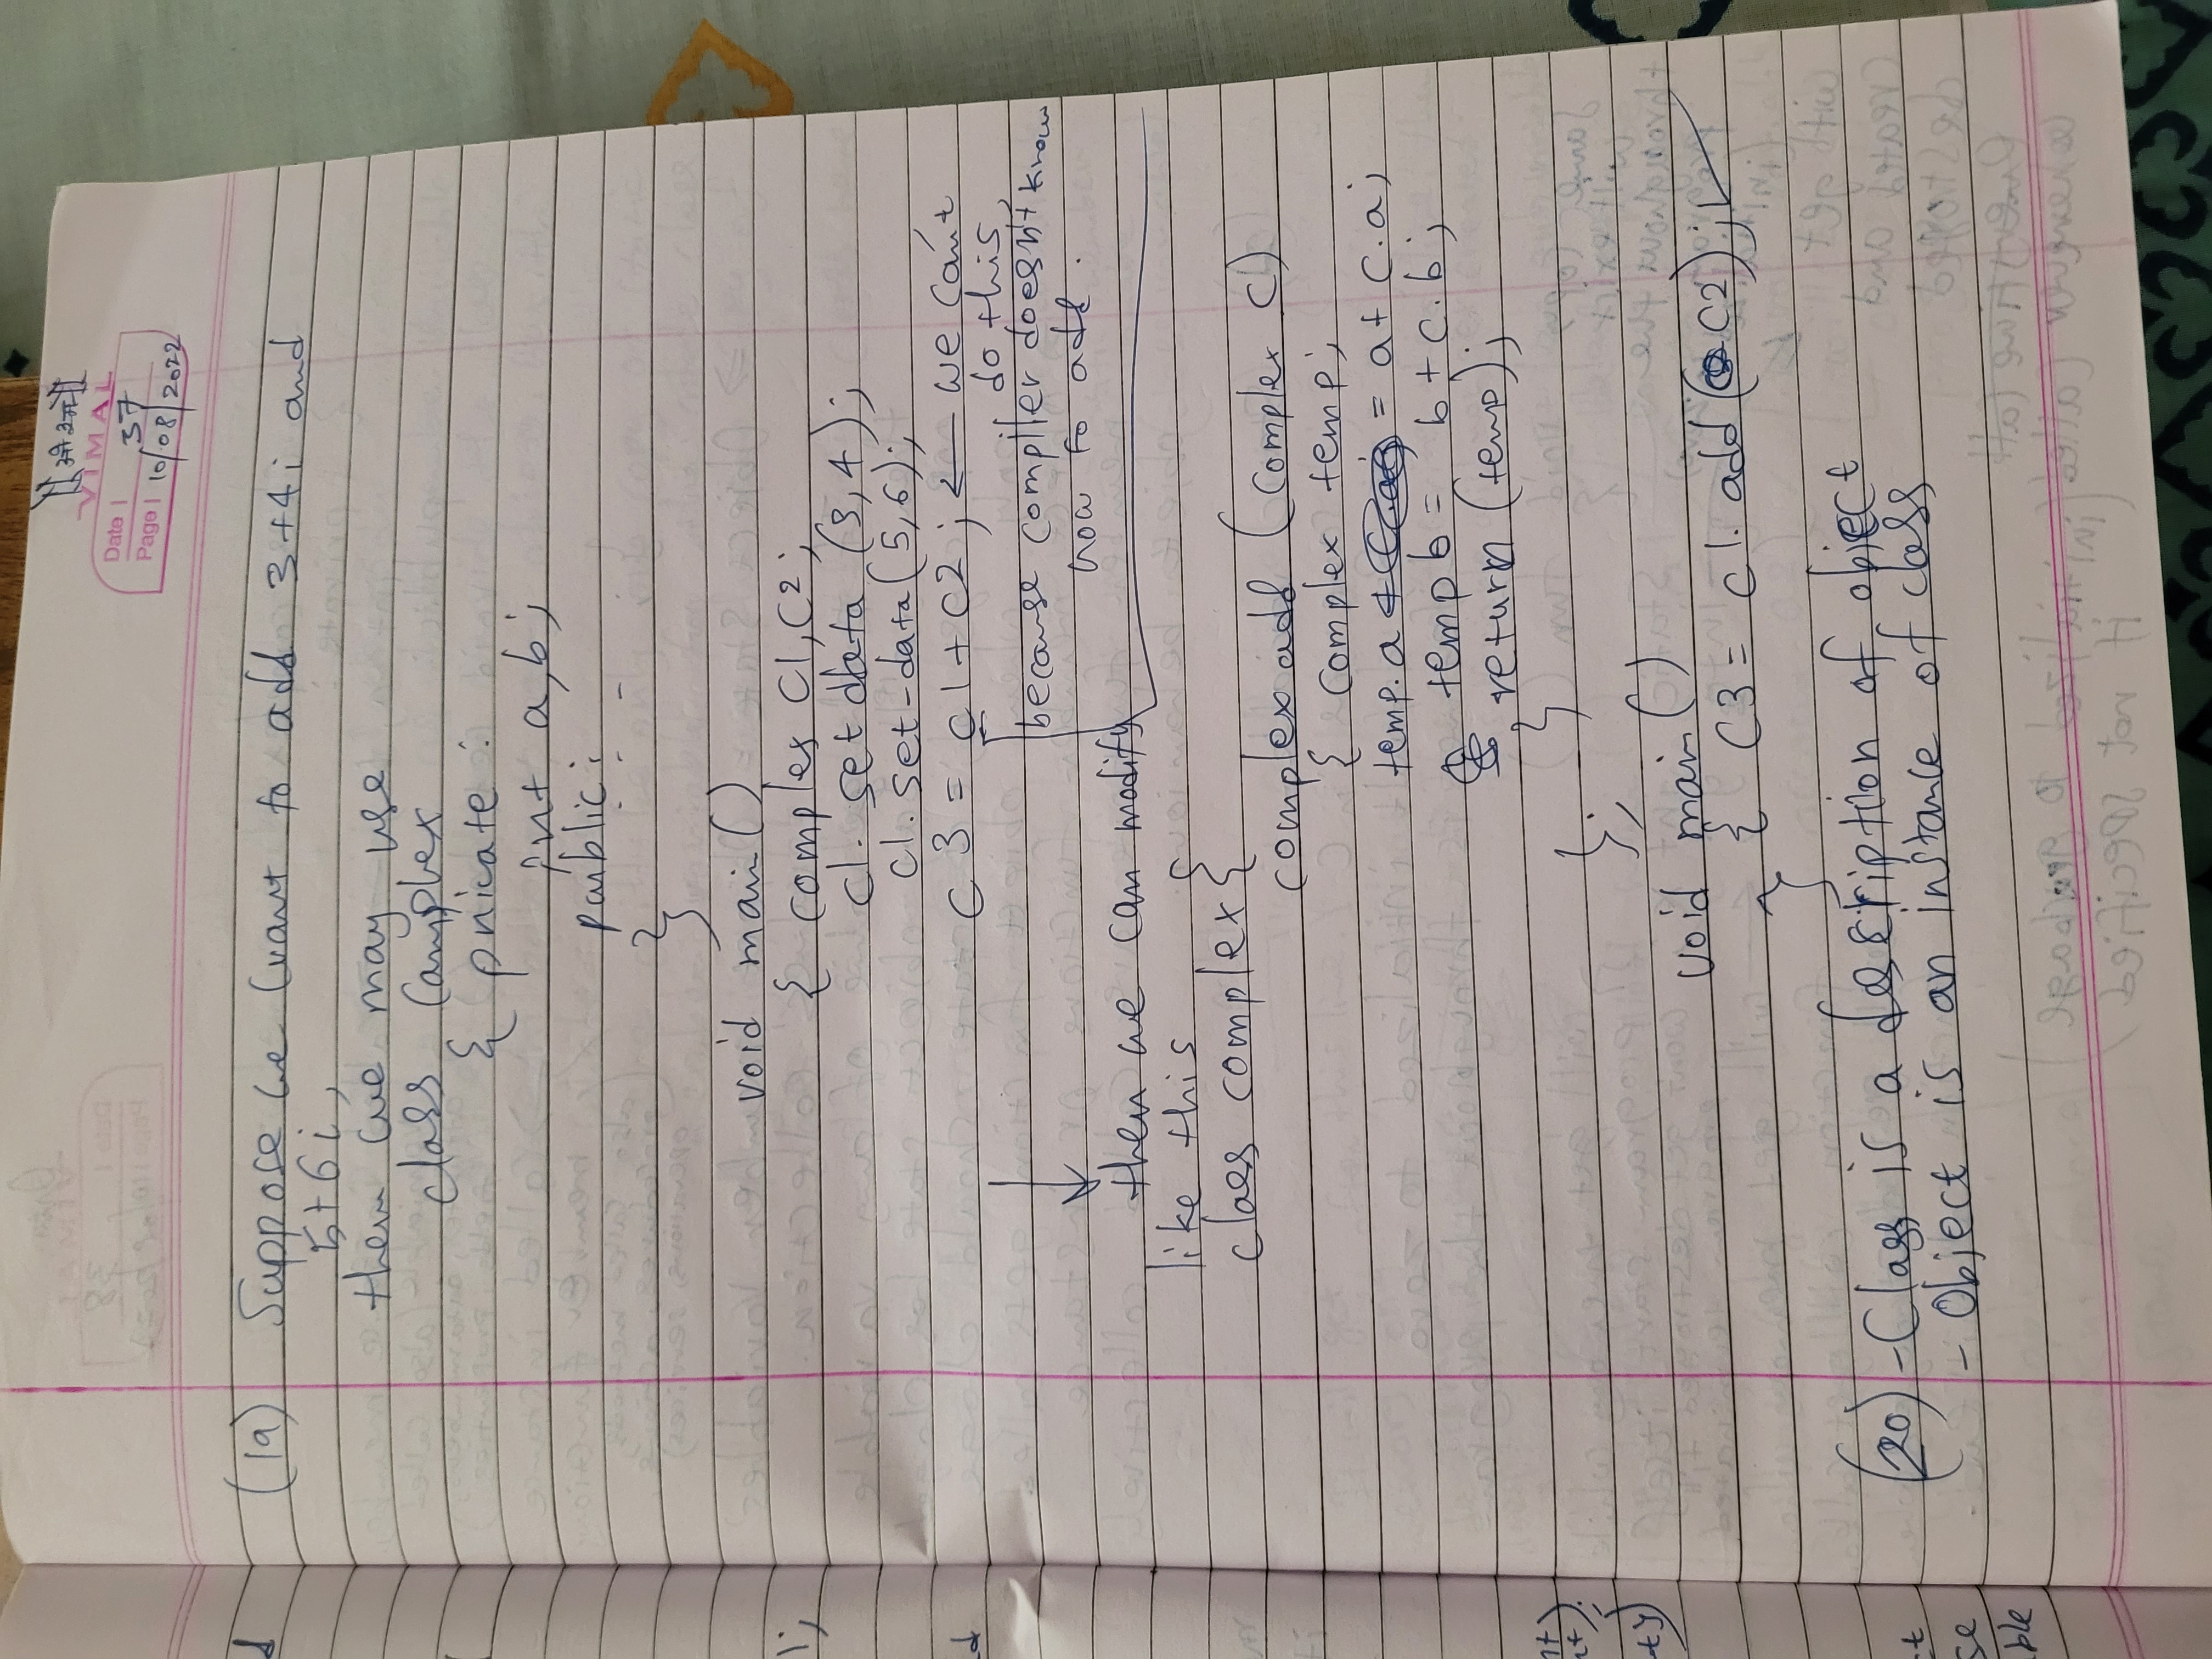 || ओ३म् ||
VIMAL
Date 37
Page 10/08/2022
(19) Suppose we want to add 3+4i and
5+6i,
then we may use
class Complex
{ private :
int a,b;
public:
- - -
}
void main()
{ complex C1,C2;
c1. set data (3,4);
c1. set-data(5,6);
c3 = c1+c2; ← we can't
do this,
because compiler doesn't know
how to add.
then we can modify
like this
class complex {
complex add (Complex C)
{ Complex temp;
temp.a = a+c.a;
temp b = b+c.b;
return (temp);
}
};
void main()
{ C3 = c1. add (C2); ✓
}
(20) - Class is a description of object
- Object is an instance of class